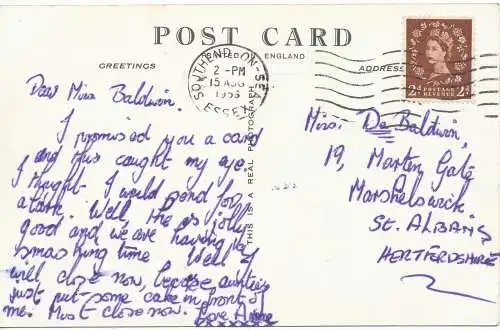 POST CARD
PRINTED IN ENGLAND
GREETINGS
ADDRESS
SOUTHEND-ON-SEA
2 - PM
15 AUG
1955
ESSEX
2D POSTAGE REVENUE 2D
THIS IS A REAL PHOTOGRAPH
Dear Miss Baldwin.
I promised you a card
and this caught my eye.
I thought I would send for
a lark. Well life is jolly
good and we are having a
smashing time Well I
will close now, because auntie
just put some cake in front of
me. Must close now. Love
Miss. De Baldwin,
19, Marten Gate
Marshelswick
ST. ALBANS
HERTFORDSHIRE